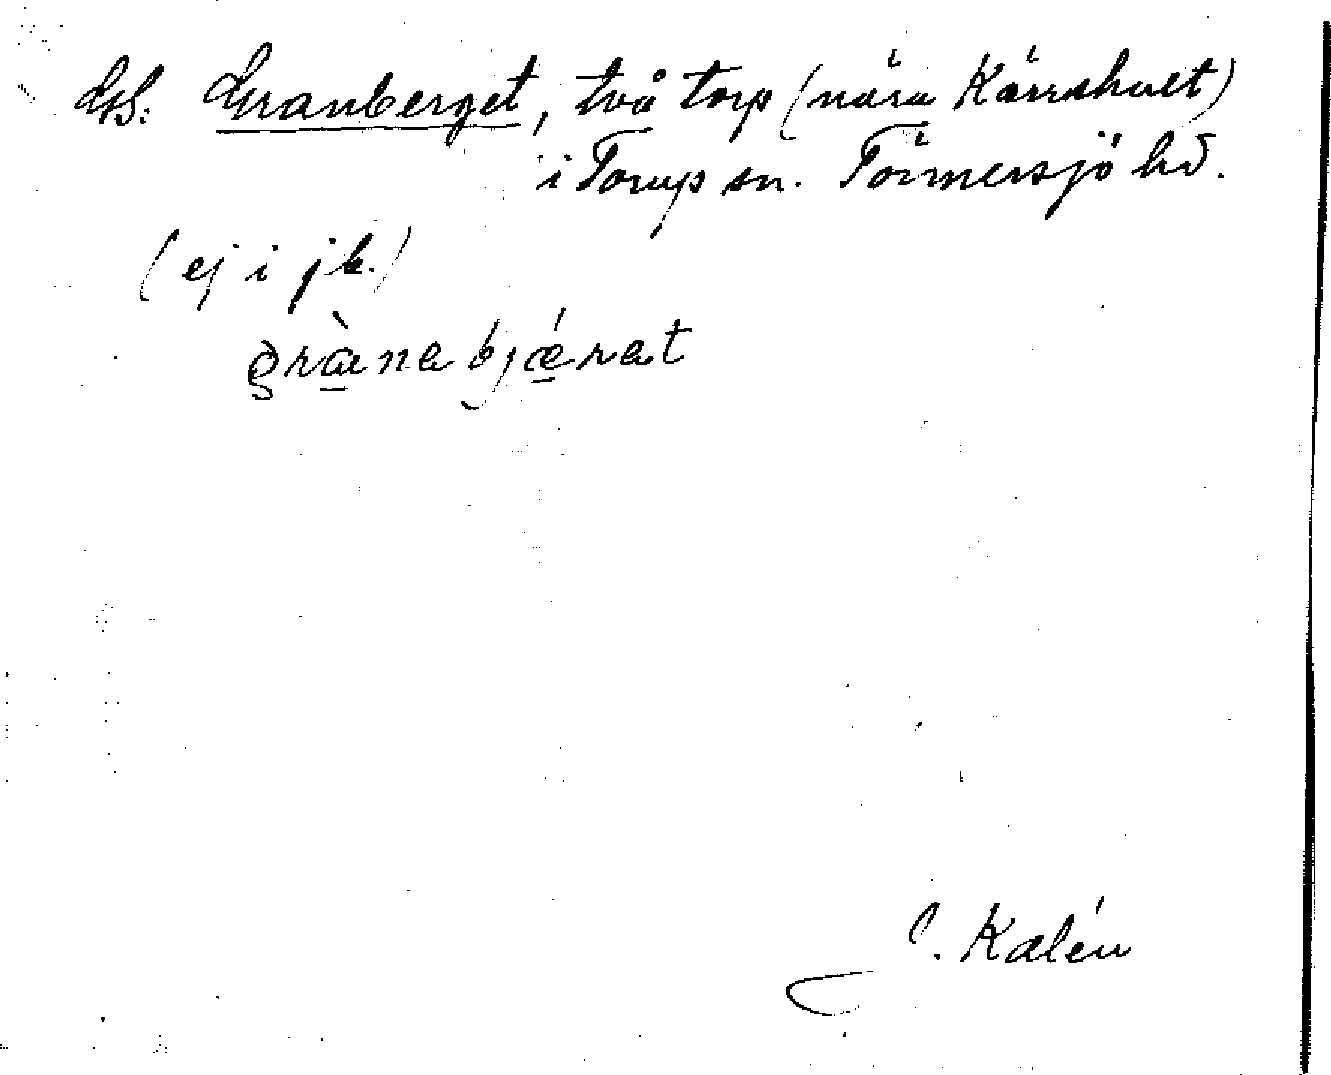 Gs. Granberget, två torp (nära Kärrshult)
i Torup sn. Tönnersjö hd.
(ej i jb.)
gràna bjǽrat
J. Kalén